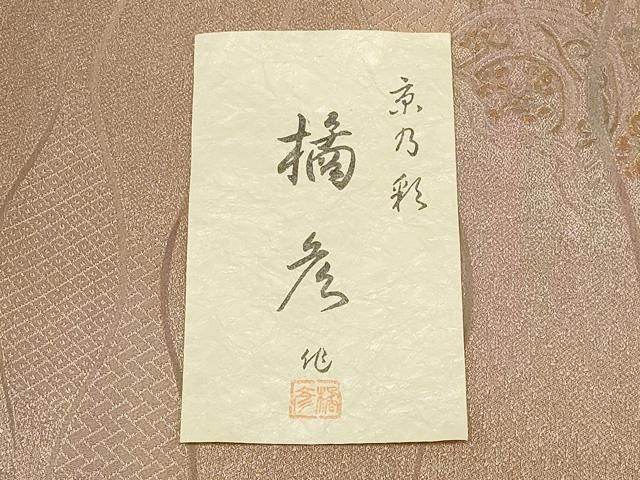 京乃彩
橘彦
作
橘彦